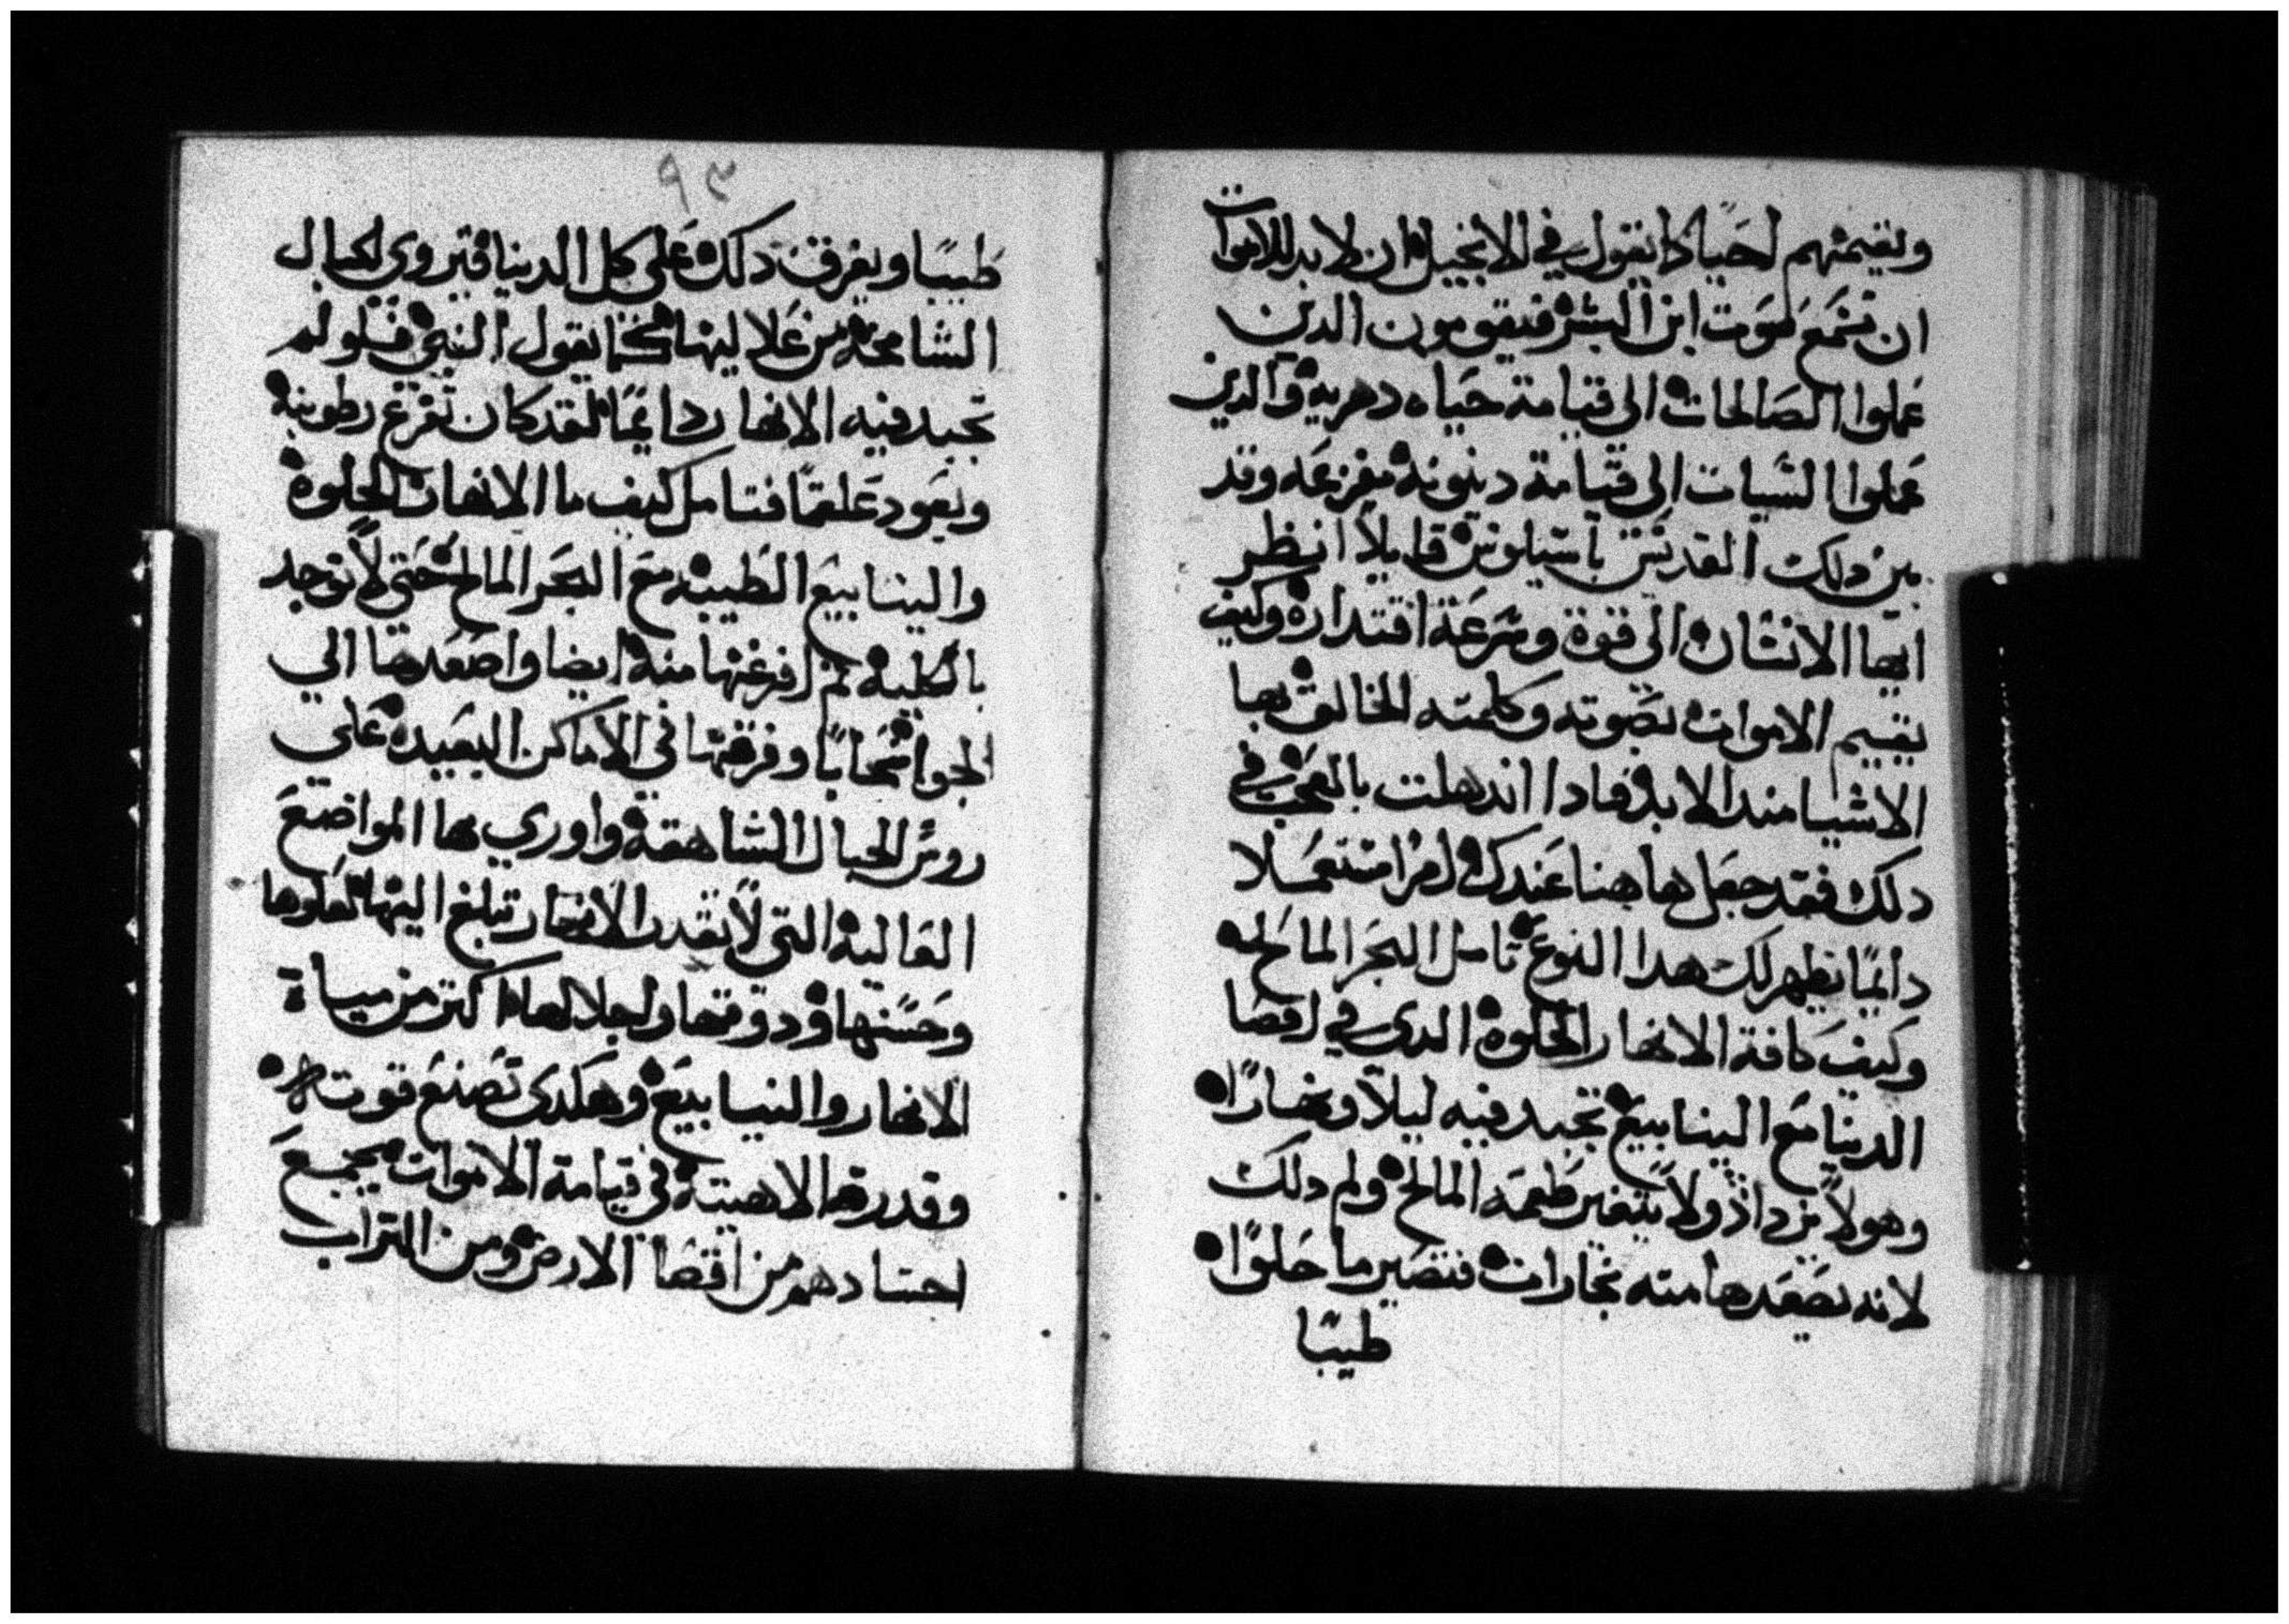 ويقيمهم احيا كما يقول في الانجيل ان لا بد للاموات
ان تسمع صوت ابن البشر فيقومون الدين
عملوا الصالحات الى قيامة حياه دهريه والدين
عملوا السيات الى قيامة دينونه مفزعه وقد
بين دلك القديس باسيليوس قايلاً انظر
ايها الانسان الى قوة وسرعة اقتداره وكيف
يقيم الاموات بصوته وكلمته الخالق بها
الاشيا مند الابد فادا اندهلت بالعجب في
دلك فقد جعل هاهنا عندك امرا مستعملا
دائمًا يظهر لك هدا النوع تامل البحر المالح
وكيف كافة الانهار الحلوه الدى في اقصا
الدنيا مع الينابيع تجيد فيه ليلاً ونهارًا
وهو لا يزداد ولا يتغير طعمه المالح ولم دلك
لانه يصعدها منه بخارات فتصير ما حلوًا
طيبًا
٩٣
طيبًا ويفرق دلك على كل الدنيا فتروي الجبال
الشامخه من علاليها كما يقول النبي فلو لم
تجيد فيه الانهار دايمًا لقد كان تفرغ رطوبته
ويعود علقمًا فتامل كيف ما الانهار الحلوه
والينابيع الطيبه مع البحر المالح حتى لا توجد
بالكليه ثم افرغها منه ايضا واصعدها الي
الجو سحابًا وفرقها في الاماكن البعيده على
روس الجبال الشاهقة واوري بها المواضع
العاليه التي لا تقدر الانهار تبلغ اليها لعلوها
وحسنها ودوقها واجلالها اكتر من مياة
الانهار والنيابيع وهكدى تصنع قوت
وقدرته الاهيته في قيامة الاموات يجمع
اجسادهم من اقصا الارض ومن التراب